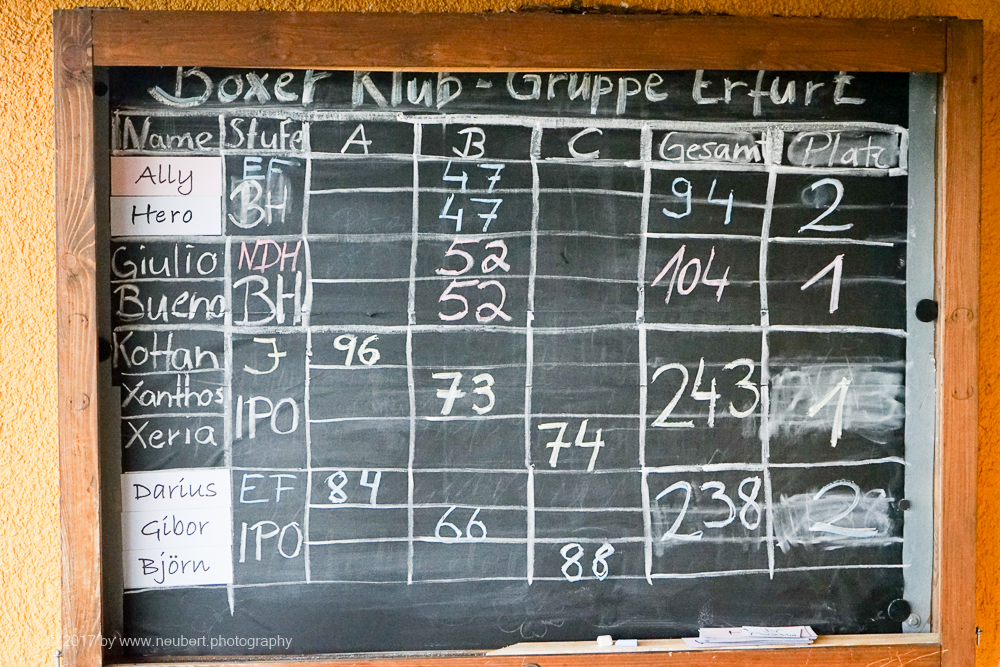 Boxer Klub - Gruppe Erfurt
Name Stufe A B C Gesamt Platz
Ally EF 47
Hero BH 47 94 2
Giulio NDH 52
Bueno BH 52 104 1
Kottan J 96
Xanthos IPO 73 243 1
Xeria 74
Darius EF 84
Gibor IPO 66 238 2
Björn 88
2017 by www.neubert.photography